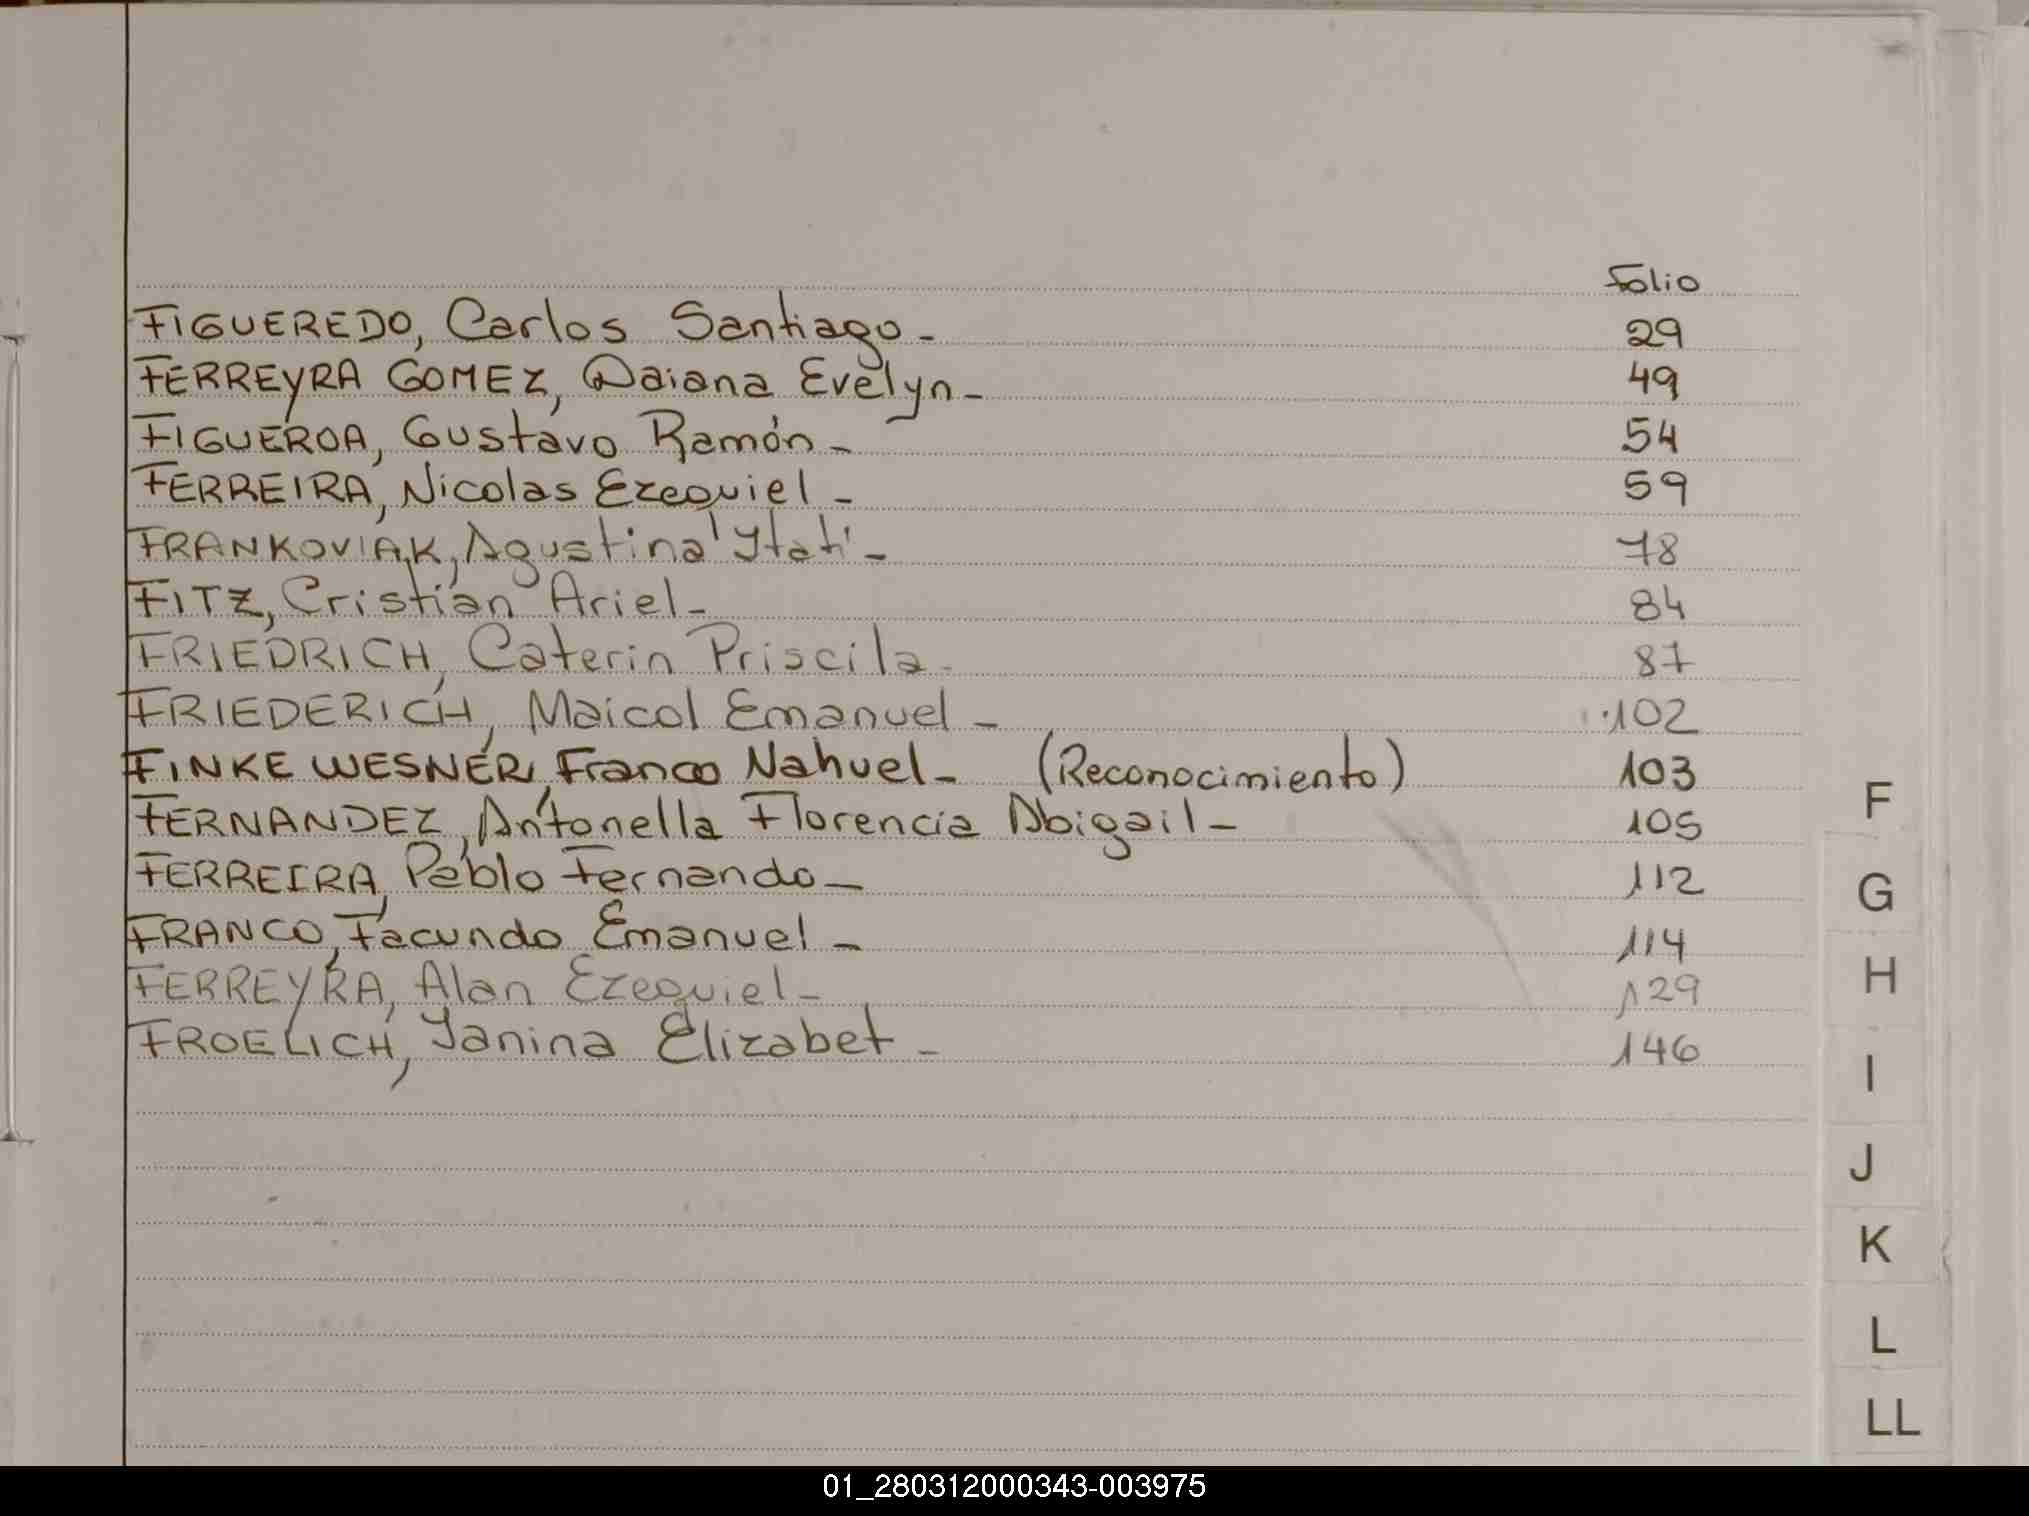 Folio
FIGUEREDO, Carlos Santiago - 29
FERREYRA GOMEZ, Daiana Evelyn - 49
FIGUEROA, Gustavo Ramón - 54
FERREIRA, Nicolas Ezequiel - 59
FRANKOVIAK, Agustina Ytatí - 78
FITZ, Cristian Ariel - 84
FRIEDRICH, Caterin Priscila - 87
FRIEDERICH, Maicol Emanuel - 102
FINKE WESNER, Franco Nahuel - (Reconocimiento) 103
FERNANDEZ, Antonella Florencia Abigail - 105
FERREIRA, Pablo Fernando - 112
FRANCO, Facundo Emanuel - 114
FERREYRA, Alan Ezequiel - 129
FROELICH, Yanina Elizabet - 146
F
G
H
I
J
K
L
LL
01_280312000343-003975